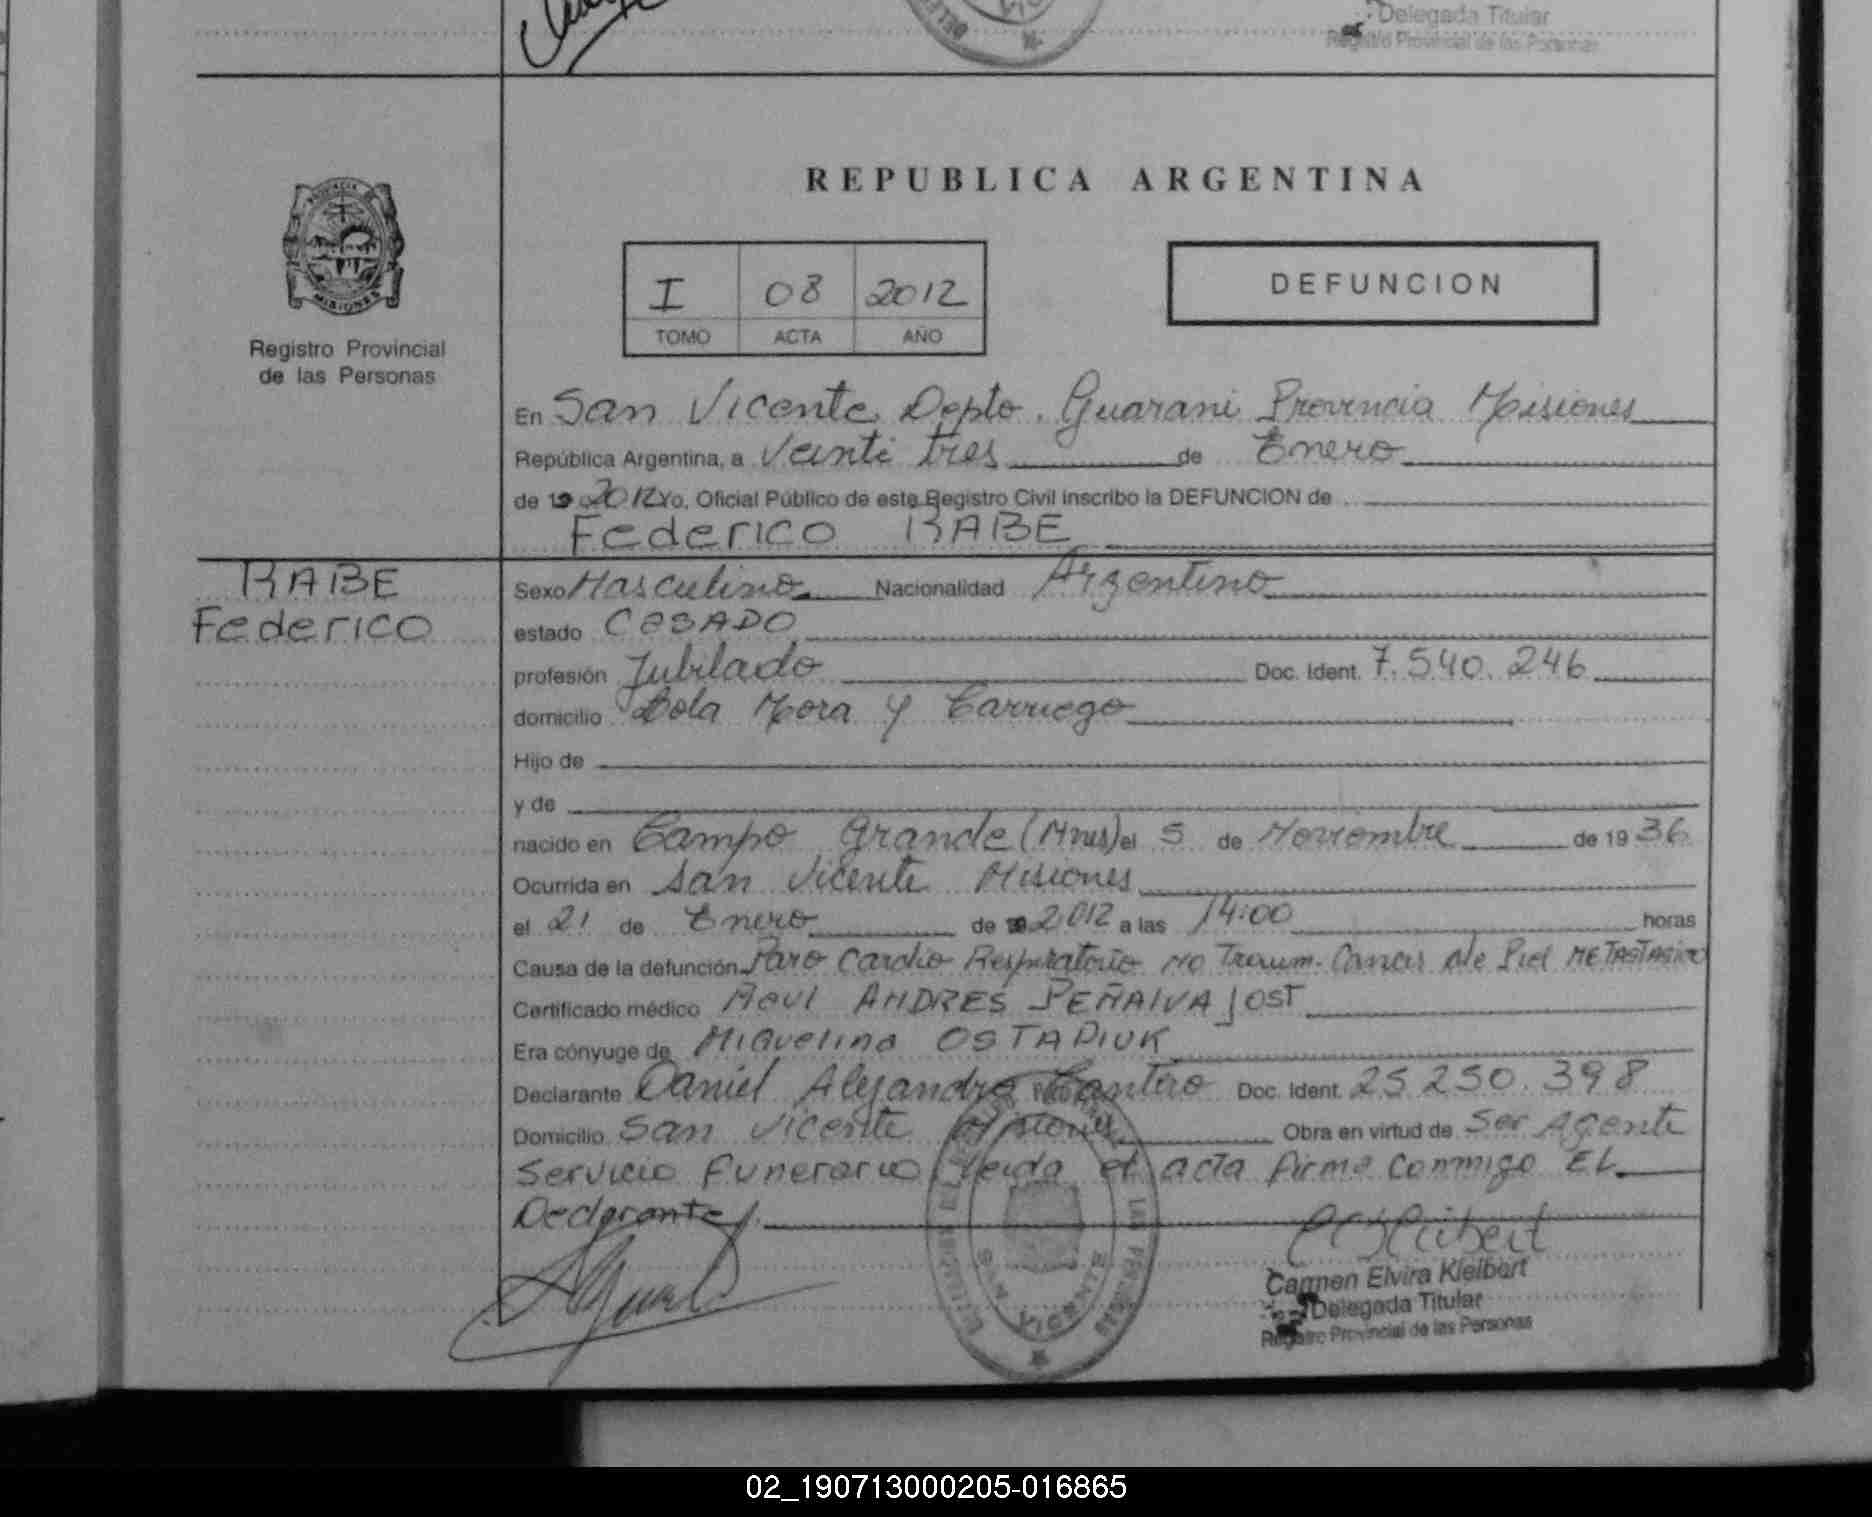 Delegada Titular
Registro Provincial de las Personas
REPUBLICA ARGENTINA
I 08 2012
TOMO ACTA AÑO
DEFUNCION
MISIONES
Registro Provincial
de las Personas
En San Vicente Depto. Guarani Provincia Misiones
República Argentina, a Veinti tres de Enero
de 19 2012 Yo, Oficial Público de este Registro Civil inscribo la DEFUNCION de
Federico RABE
RABE
Federico
Sexo Masculino Nacionalidad Argentino
estado CASADO
profesión Jubilado Doc. Ident. 7.540.246
domicilio Lola Mora y Carriego
Hijo de
y de
nacido en Campo Grande (Mnes) el 5 de Noviembre de 19 36
Ocurrida en San Vicente Misiones
el 21 de Enero de 19 2012 a las 14:00 horas
Causa de la defunción Paro Cardio Respiratorio no Traum. Cancer de Piel METASTASICO
Certificado médico Raul ANDRES PEÑALVA JOST
Era cónyuge de Miguelina OSTAPIUK
Declarante Daniel Alejandro Cantero Doc. Ident. 25.250.398
Domicilio San Vicente Misiones Obra en virtud de Ser Agente
Servicio Funerario leida el acta firma conmigo EL
Declarante
Carmen Elvira Kleibert
Delegada Titular
Registro Provincial de las Personas
02_190713000205-016865